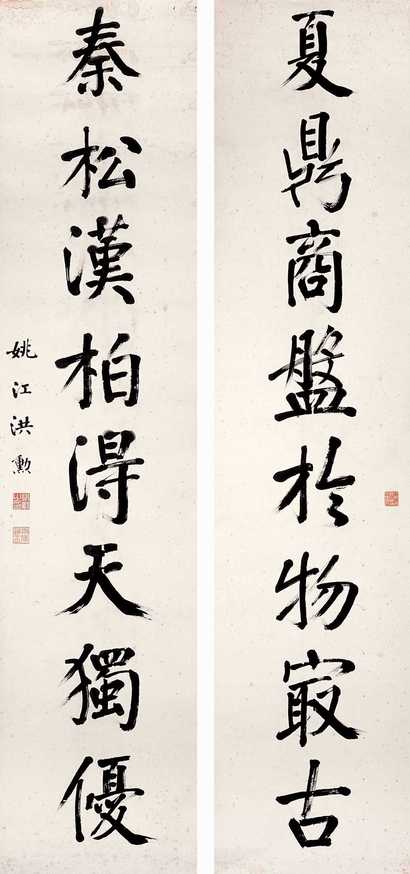 夏鼎商盤於物㝡古
秦松漢柏得天獨優
姚江洪勳